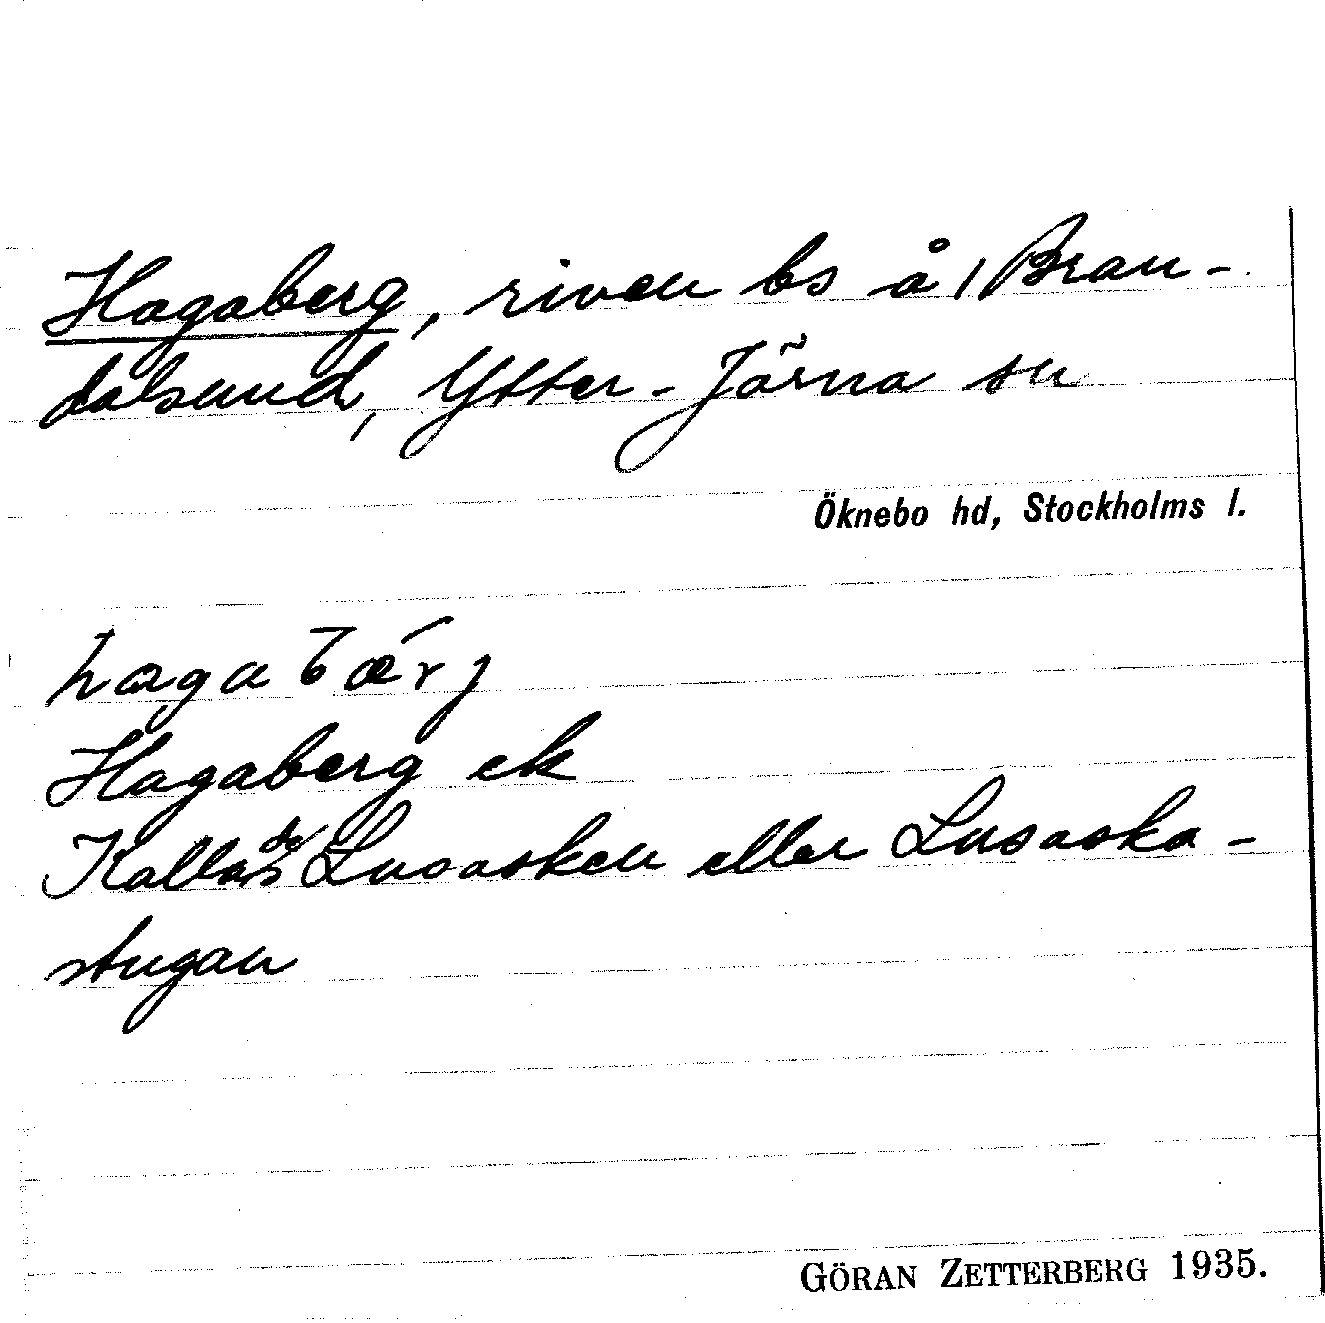 Hagaberg, riven bs å 1 Bran-
dalsund, Ytter-Järna sn
Öknebo hd, Stockholms l.
hagabærj
Hagaberg ek
Kallas Lusasken eller Lusaska-
stugan
GÖRAN ZETTERBERG 1935.